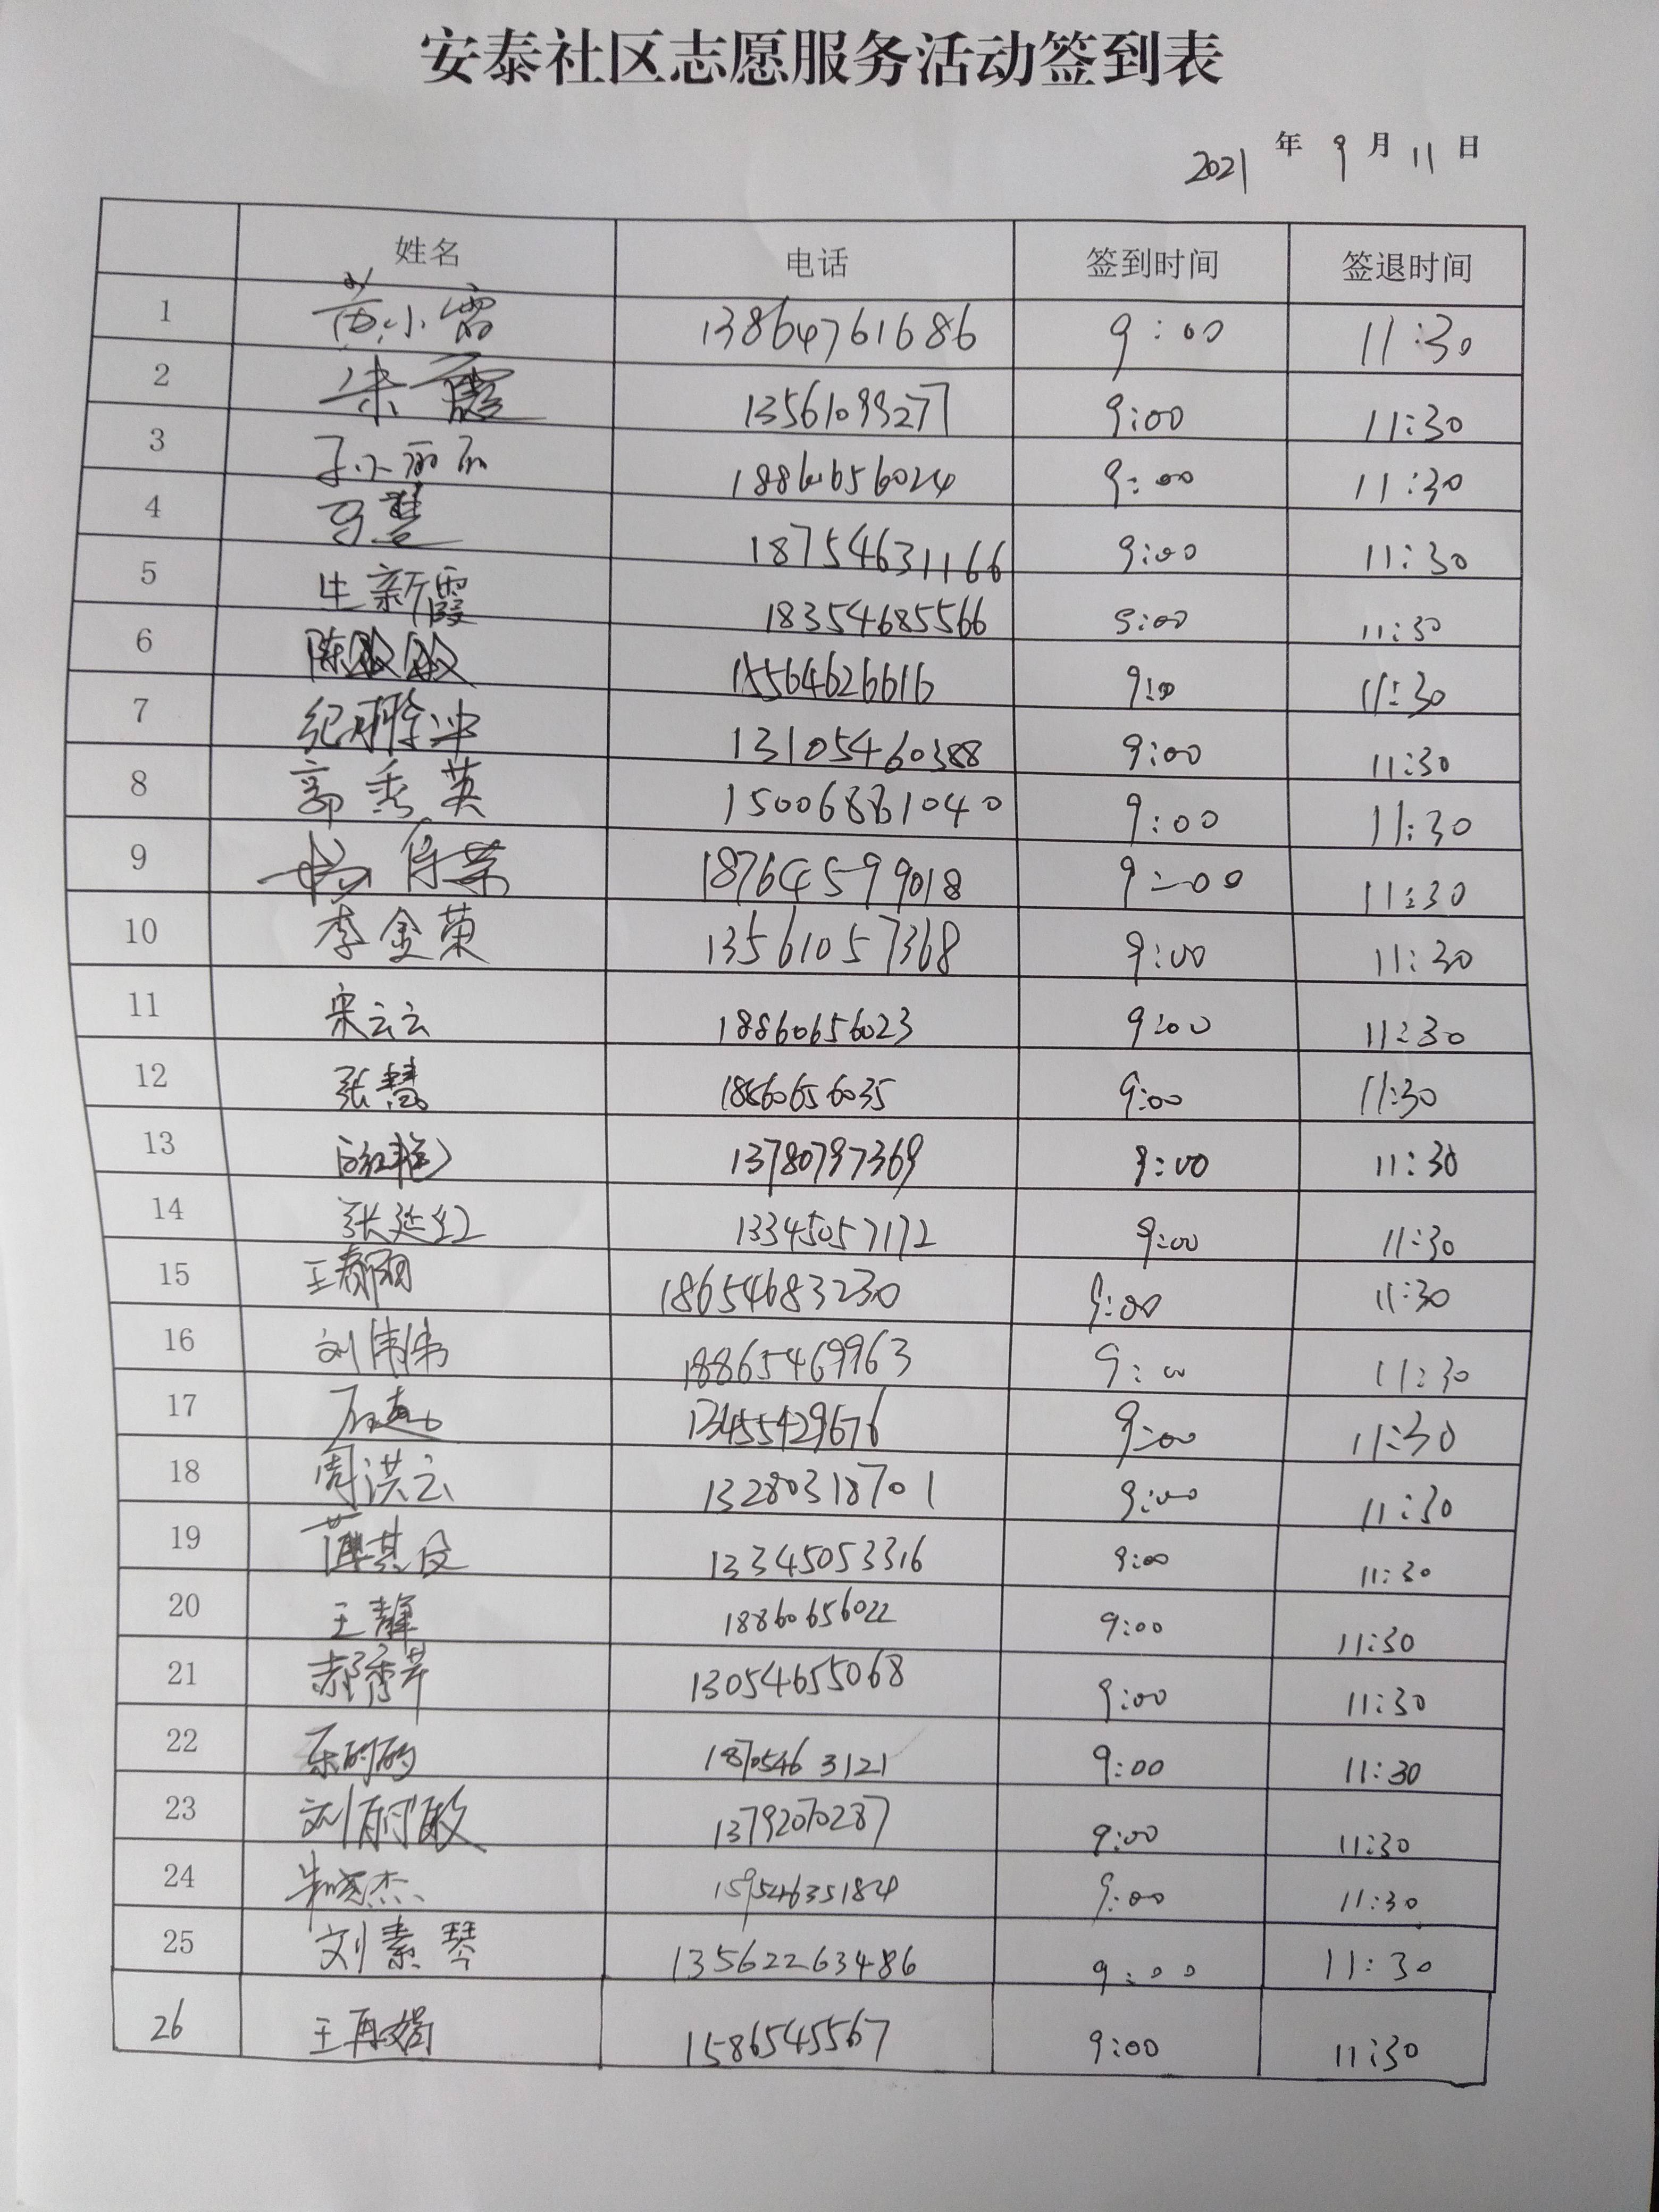 安泰社区志愿服务活动签到表
2021 年 9 月 11 日
姓名 电话 签到时间 签退时间
1 黄小霜 13864761686 9:00 11:30
2 朱霞 13561099277 9:00 11:30
3 孙丽丽 18860656024 9:00 11:30
4 马慧 18754631166 9:00 11:30
5 牛新霞 18354685566 9:00 11:30
6 陈敏敏 15564626616 9:00 11:30
7 纪 13105460388 9:00 11:30
8 郭秀英 15006881040 9:00 11:30
9 杨 18764599018 9:00 11:30
10 李金荣 13561057368 9:00 11:30
11 宋云云 18860656023 9:00 11:30
12 张慧 18860656035 9:00 11:30
13 13780797369 9:00 11:30
14 张延红 13345057172 9:00 11:30
15 王 18654683230 9:00 11:30
16 刘伟伟 18865469963 9:00 11:30
17 13455429676 9:00 11:30
18 周洪云 13280318701 9:00 11:30
19 薄其俊 13345053316 9:00 11:30
20 王静 18860656022 9:00 11:30
21 郝秀芹 13054655068 9:00 11:30
22 18705463121 9:00 11:30
23 刘丽敏 13792070287 9:00 11:30
24 朱 杰 15954635184 9:00 11:30
25 刘素琴 13562263486 9:00 11:30
26 王再娟 1586545567 9:00 11:30